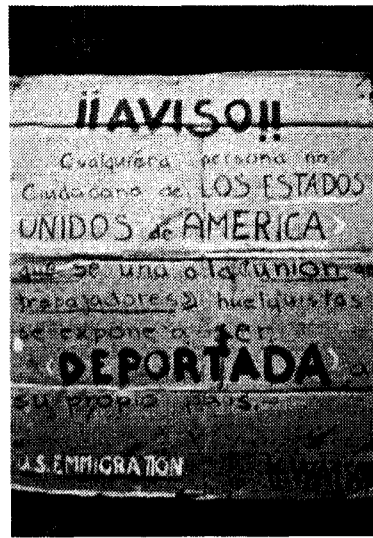 ¡¡AVISO!!
Cualquiera persona no
Ciudadano de LOS ESTADOS
UNIDOS de AMERICA
que se una a la union de
trabajadores o huelguistas
se expone a ser
DEPORTADA a
su propio pais.-
U.S. EMMIGRATION